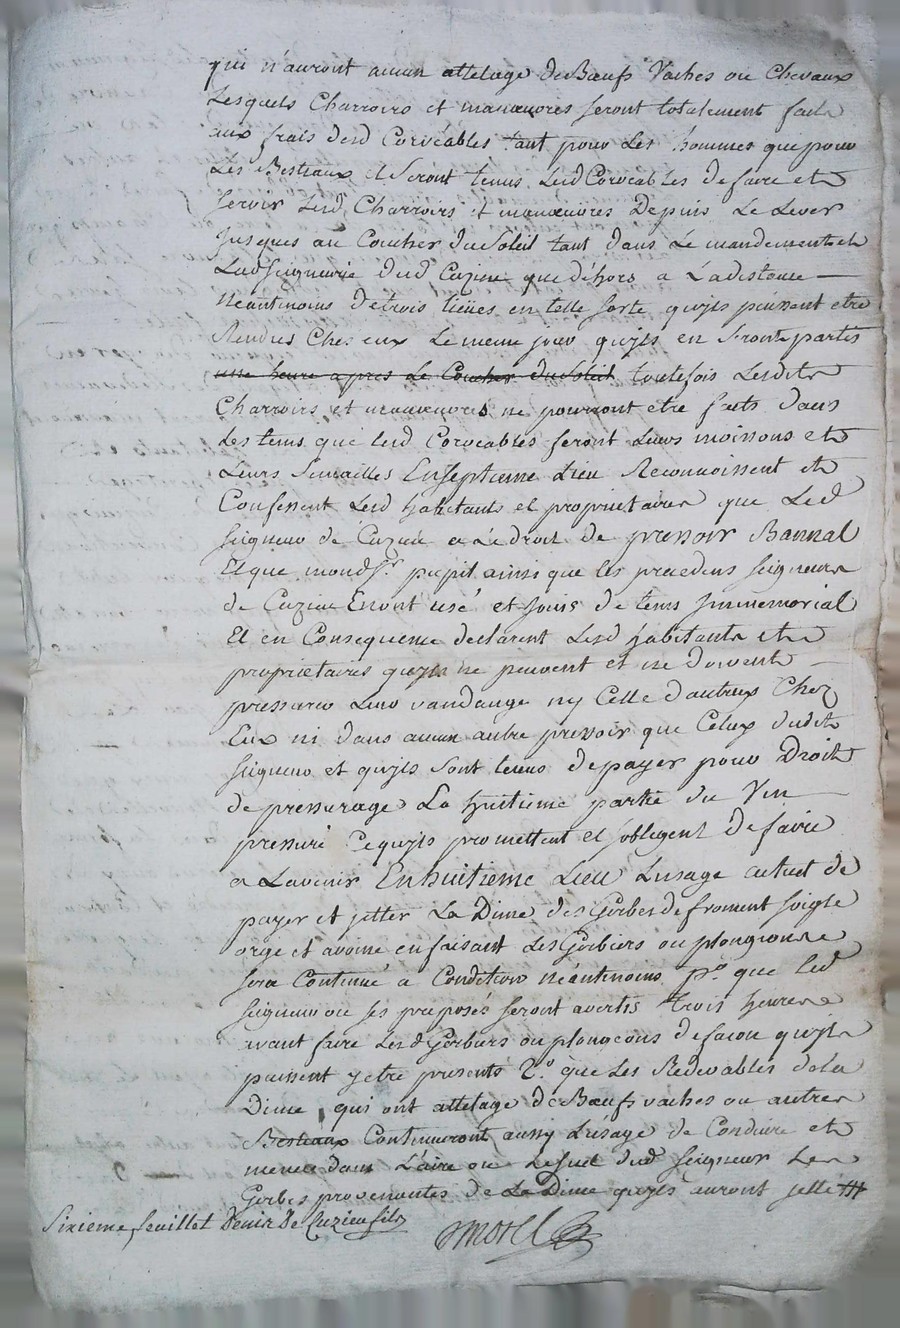 qui n'auront aucun attelage de Bœufs Vaches ou Chevaux
Lesquels Charroirs et manœuvres seront totalement faits
aux frais desd Corvéables tant pour Les hommes que pour
Les Bestiaux et Seront tenus Lesd Corvéables de faire et
servir Lesd Charroirs et manœuvres Depuis Le Lever
Jusques au Coucher du Soleil tant dans Le mandement et
Lad Seigneurie dud Cuzieu que déhors a La distance
Néantmoins de trois lieües en telle sorte qu'ils puissent etre
Rendus Ches eux Le meme jour qu'ils en seront partis
une heure apres Le Coucher du Soleil toutefois Lesdits
Charroirs et manœuvres ne pourront etre faits dans
Les tems que lesd Corvéables feront Leurs moissons et
Leurs Semailles En septieme Lieu Reconnoissent et
Confessent Lesd habitants et proprietaires que Led
seigneur de Cuzieu a Le droit de pressoir Bannal
Et que mond Sr. pupil ainsi que les precedens seigneurs
de Cuzieu En ont usé et Joüis de tems Immemorial
Et en Consequence declarent Lesd habitants et
proprietaires qu'ils ne peuvent et ne doivent
pressurer Leur vandange ny Celle d'autrux Chez
Eux ni dans aucun autre pressoir que Celux dudit
seigneur et qu'ils sont tenus de payer pour Droit
de pressurage La huitieme partie du Vin
pressuré Ce qu'ils promettent et s'obligent de faire
a L'avenir En huitieme Lieu L'usage actuel de
payer et jetter La Dime des Gerbes de froment soigle
orge et avoine en faisant Les Gerbiers ou plongeons
sera Continué a Condition néantmoins 1º. que led
seigneur ou ses preposés seront avertis trois heures
avant faire Lesd Gerbiers ou plongeons de facon qu'ils
puissent y etre presents 2º. que Les Redevables de La
Dime qui ont attelage de Bœufs vaches ou autres
Bestiaux Continueront aussy L'usage de Conduire et
mener dans L'aire ou Le suel dud seigneur Les
Gerbes provenantes de La Dime qu'ils auront jetté
Sixieme feuillet Denis de Cuzieu fils
Morel